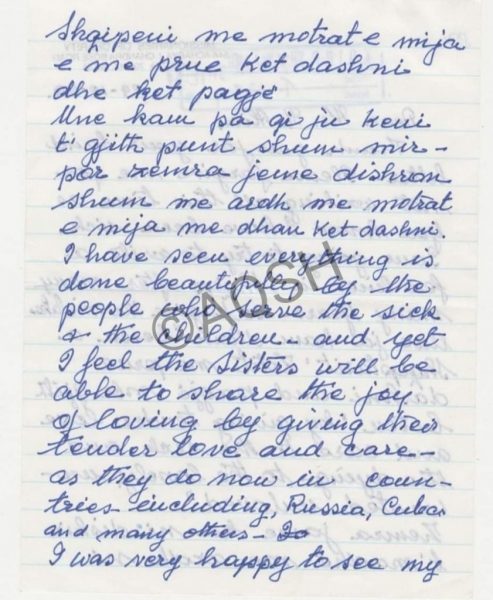 Shqipeni me motrat e mija
e me prue Ket dashni
dhe ket pagjë
Une kam pa qi ju Keni
ti gjith punt shum mir-
por zemra jeme dishron
shum me ardh me motrat
e mija me dhan Ket dashni.
I have seen everything is
done beautifully by the
people who serve the sick
& the children - and yet
I feel the Sisters will be
able to share the joy
of loving by giving their
tender love and care -
as they do now in coun-
tries including, Russia, Cuba
and many others -
I was very happy to see my
©AQSH